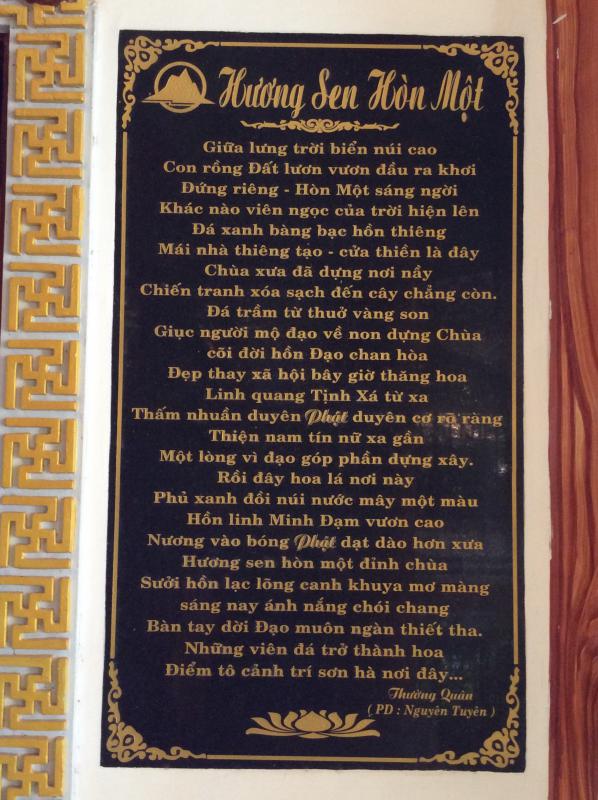 Hương Sen Hòn Một
Giữa lưng trời biển núi cao
Con rồng Đất lươn vươn đầu ra khơi
Đứng riêng - Hòn Một sáng ngời
Khác nào viên ngọc của trời hiện lên
Đá xanh bàng bạc hồn thiêng
Mái nhà thiêng tạo - cửa thiền là đây
Chùa xưa đã dựng nơi nầy
Chiến tranh xóa sạch đến cây chẳng còn.
Đá trầm từ thuở vàng son
Giục người mộ đạo về non dựng Chùa
cõi đời hồn Đạo chan hòa
Đẹp thay xã hội bây giờ thăng hoa
Linh quang Tịnh Xá từ xa
Thấm nhuần duyên Phật duyên cơ rõ ràng
Thiện nam tín nữ xa gần
Một lòng vì đạo góp phần dựng xây.
Rồi đây hoa lá nơi này
Phủ xanh đồi núi nước mây một màu
Hồn linh Minh Đạm vươn cao
Nương vào bóng Phật dạt dào hơn xưa
Hương sen hòn một đỉnh chùa
Sưởi hồn lạc lõng canh khuya mơ màng
sáng nay ánh nắng chói chang
Bàn tay dời Đạo muôn ngàn thiết tha.
Những viên đá trở thành hoa
Điểm tô cảnh trí sơn hà nơi đây...
Thường Quân
( PD : Nguyên Tuyên )